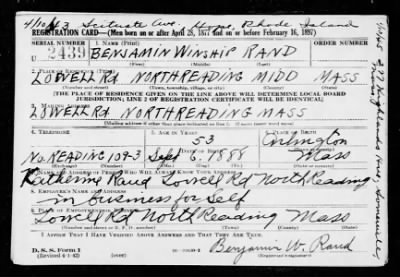 4/10/43 Scituate Ave. Hope, Rhode Island
REGISTRATION CARD—(Men born on or after April 28, 1877 and on or before February 16, 1897)
SERIAL NUMBER 1. NAME (Print)
U 2439 BENJAMIN WINSHIP RAND
(First) (Middle) (Last)
2. PLACE OF RESIDENCE (Print)
LOWELL RD NORTH READING MIDD MASS
(Number and street) (Town, township, village, or city) (County) (State)
[THE PLACE OF RESIDENCE GIVEN ON THE LINE ABOVE WILL DETERMINE LOCAL BOARD
JURISDICTION; LINE 2 OF REGISTRATION CERTIFICATE WILL BE IDENTICAL]
3. MAILING ADDRESS
LOWELL RD NORTH READING MASS
4. TELEPHONE 5. AGE IN YEARS 6. PLACE OF BIRTH
53 Arlington
DATE OF BIRTH
No. READING 109-3 Sept 6 1888 Mass
7. NAME AND ADDRESS OF PERSON WHO WILL ALWAYS KNOW YOUR ADDRESS
Katherine Rand Lowell Rd North Reading
8. EMPLOYER'S NAME AND ADDRESS
in business for Self
9. PLACE OF EMPLOYMENT OR BUSINESS
Lowell Rd North Reading Mass
(Number and street or R. F. D. number) (Town) (County) (State)
I AFFIRM THAT I HAVE VERIFIED ABOVE ANSWERS AND THAT THEY ARE TRUE.
D. S. S. Form 1
(Revised 4-1-42)
Benjamin W. Rand